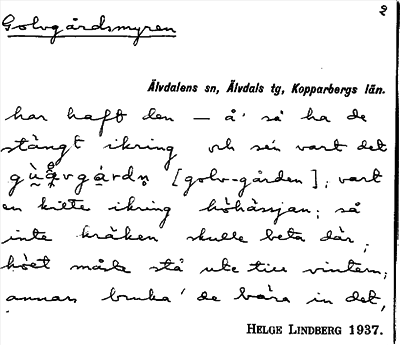 2
Golvgårdsmyren
Älvdalens sn, Älvdals tg, Kopparbergs län.
har haft den — å' så ha de
stängt ikring och sén vart det
[golv-gården]; vart
en kitte ikring höhässjan; så
inte kräken skulle beta där;
höet måste stå ute till vintern;
annars bruka' de bära in det,
HELGE LINDBERG 1937.